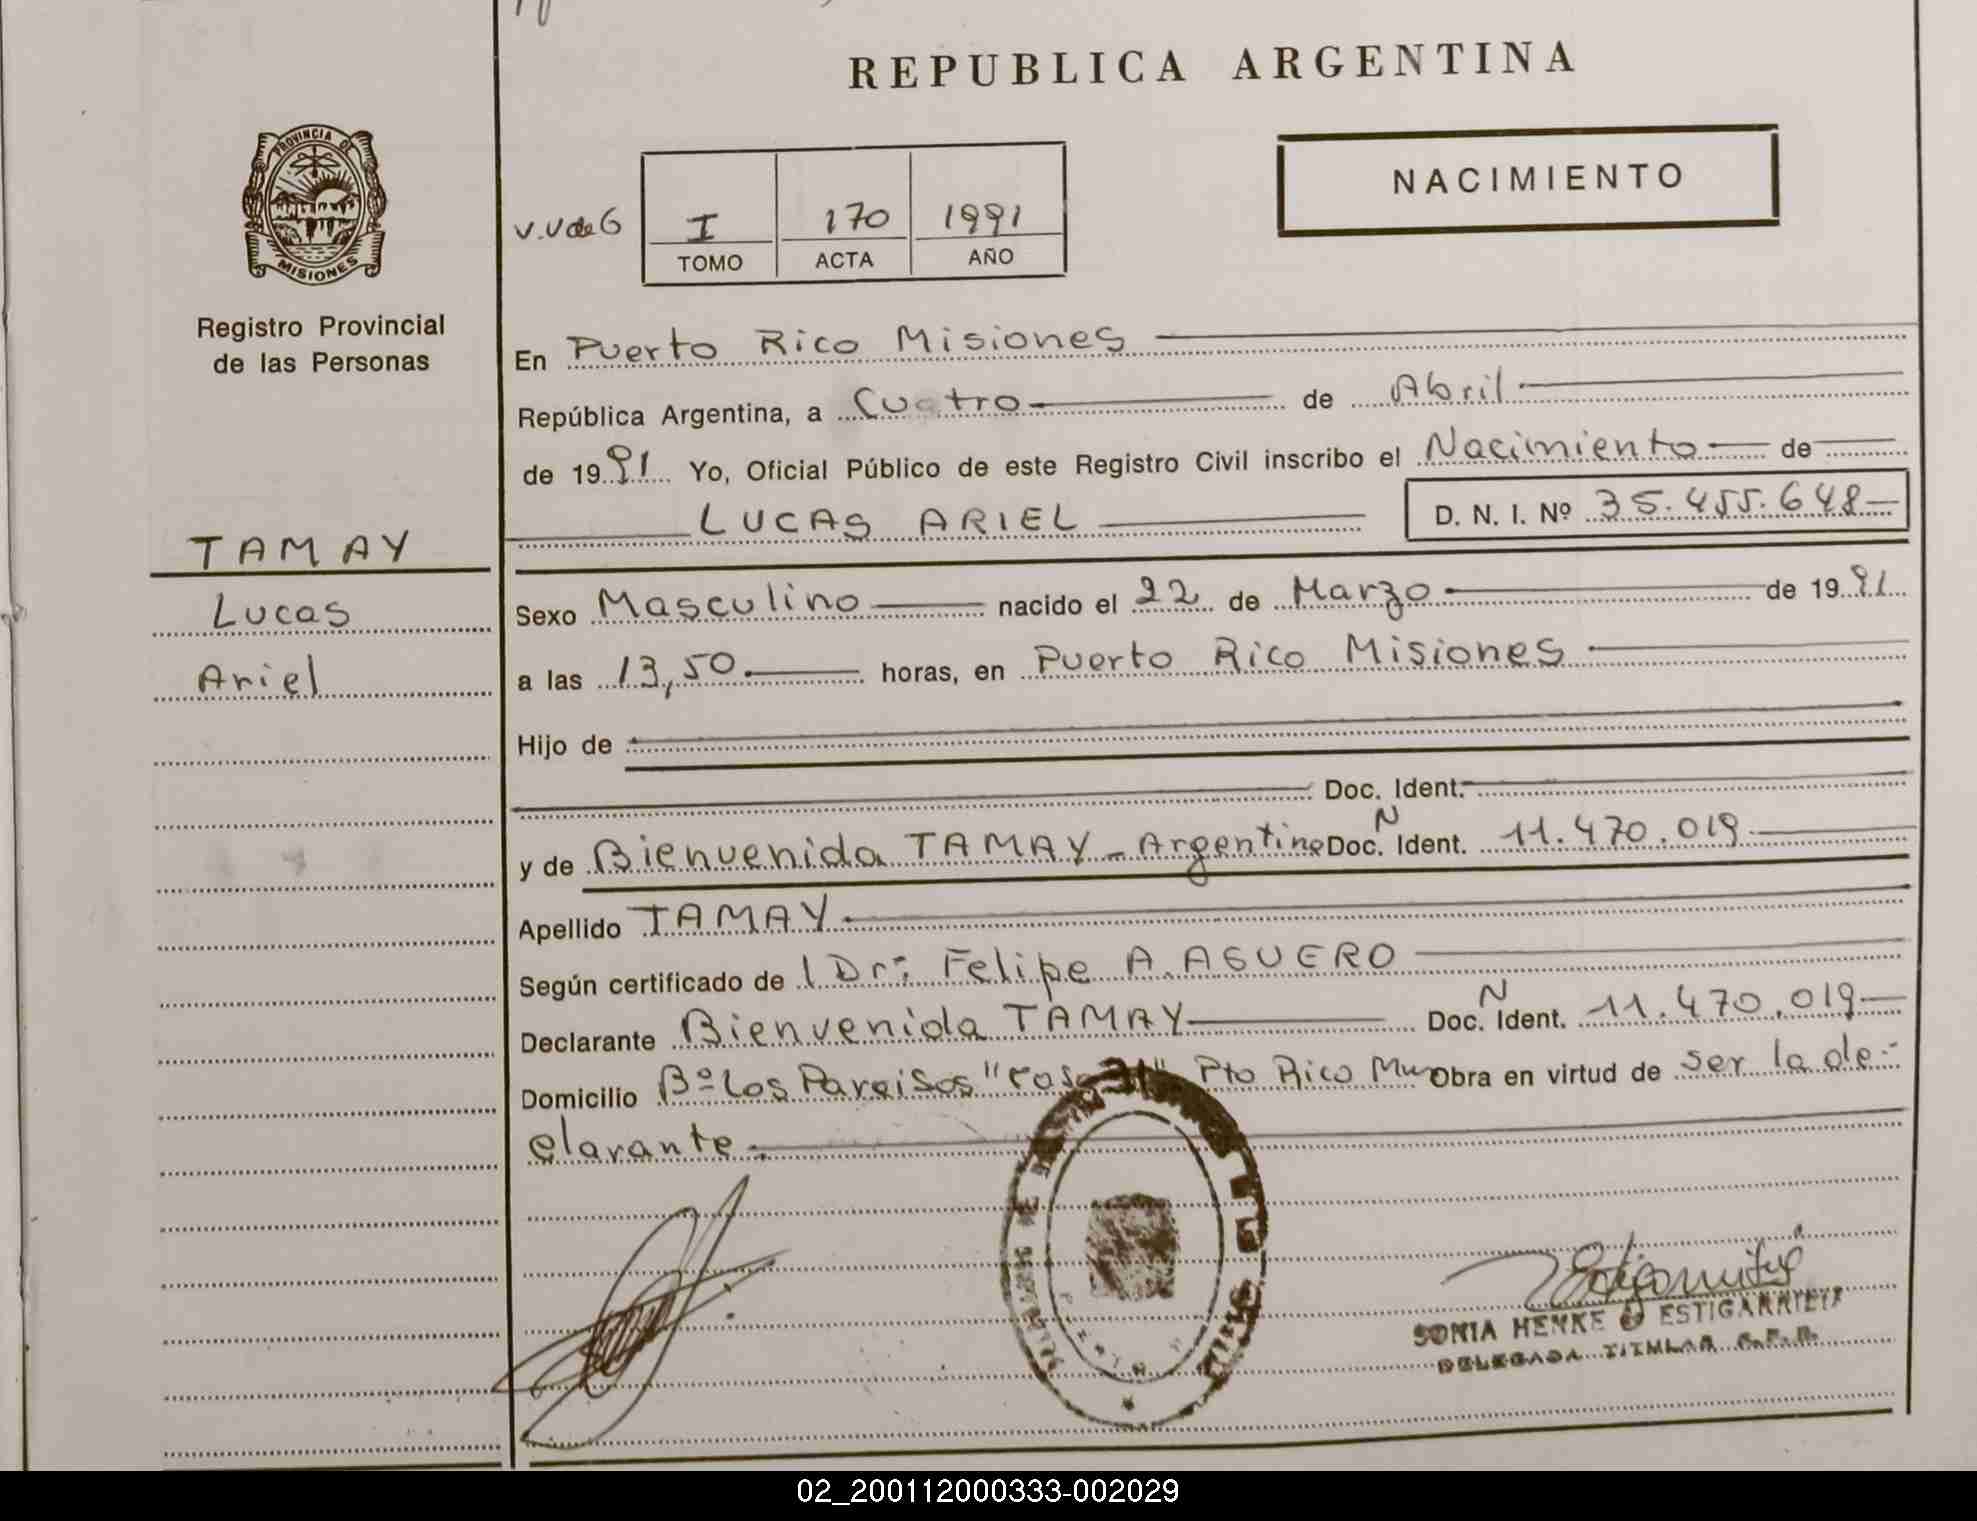 REPUBLICA ARGENTINA
PROVINCIA DE
MISIONES
NACIMIENTO
I 170 1991
TOMO ACTA AÑO
Registro Provincial
de las Personas
TAMAY
Lucas
Ariel
En Puerto Rico Misiones
República Argentina, a Cuatro de Abril
de 1991 Yo, Oficial Público de este Registro Civil inscribo el Nacimiento de
LUCAS ARIEL D. N. I. Nº 35.455.648
Sexo Masculino nacido el 22 de Marzo de 1991
a las 13,50 horas, en Puerto Rico Misiones
Hijo de
Doc. Ident.
y de Bienvenida TAMAY - Argentina Doc. N Ident. 11.470.019
Apellido TAMAY
Según certificado de l Dr: Felipe A. AGUERO
Declarante Bienvenida TAMAY Doc. N Ident. 11.470.019
Domicilio Bº Los Paraisos "casa 31" Pto Rico Mnes Obra en virtud de ser la de-
clarante
SONIA HENKE D ESTIGARRIBIA
DELEGADA TITULAR R.P.P.
02_200112000333-002029